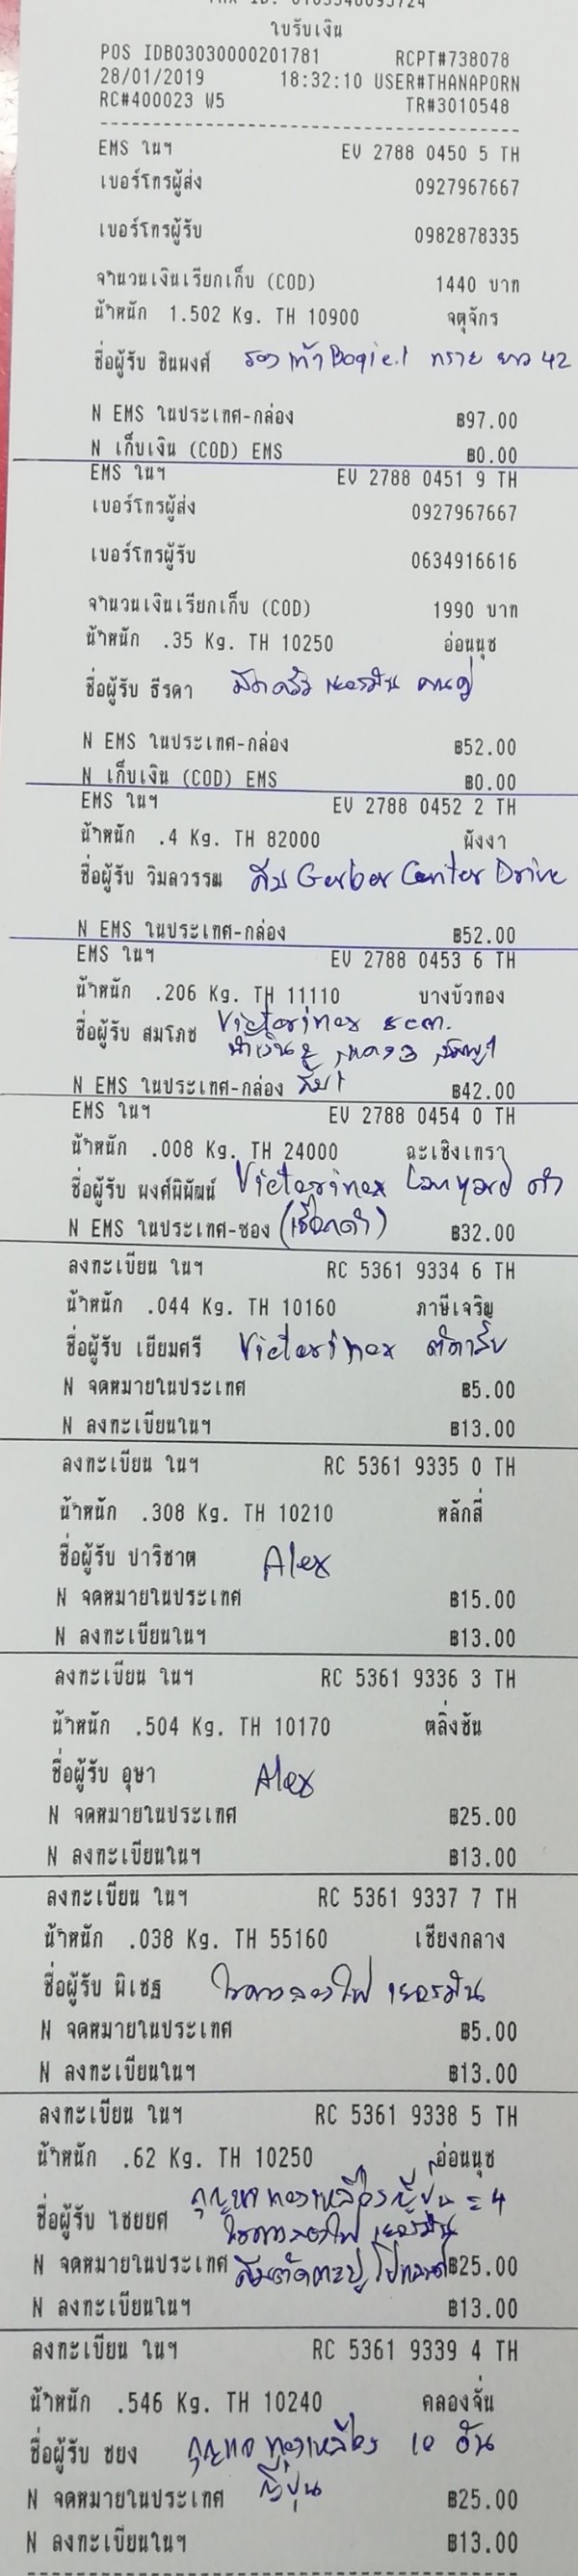 ใบรับเงิน
POS IDB03030000201781 RCPT#738078
28/01/2019 18:32:10 USER#THANAPORN
RC#400023 W5 TR#3010548
EMS ในฯ EV 2788 0450 5 TH
เบอร์โทรผู้ส่ง 0927967667
เบอร์โทรผู้รับ 0982878335
จำนวนเงินเรียกเก็บ (COD) 1440 บาท
น้ำหนัก 1.502 Kg. TH 10900 จตุจักร
ชื่อผู้รับ ชินพงศ์ รองเท้า ทราย ยาว 42
N EMS ในประเทศ-กล่อง ฿97.00
N เก็บเงิน (COD) EMS ฿0.00
EMS ในฯ EV 2788 0451 9 TH
เบอร์โทรผู้ส่ง 0927967667
เบอร์โทรผู้รับ 0634916616
จำนวนเงินเรียกเก็บ (COD) 1990 บาท
น้ำหนัก .35 Kg. TH 10250 อ่อนนุช
ชื่อผู้รับ ธีรดา มีดครัว เยอรมัน
N EMS ในประเทศ-กล่อง ฿52.00
N เก็บเงิน (COD) EMS ฿0.00
EMS ในฯ EV 2788 0452 2 TH
น้ำหนัก .4 Kg. TH 82000 พังงา
ชื่อผู้รับ วิมลวรรณ คีม Gerber Center Drive
N EMS ในประเทศ-กล่อง ฿52.00
EMS ในฯ EV 2788 0453 6 TH
น้ำหนัก .206 Kg. TH 11110 บางบัวทอง
ชื่อผู้รับ สมโภช Victorinox 8cm.
น้ำเงิน 2 แดง 3 ชมพู 1
N EMS ในประเทศ-กล่อง ส้ม 1 ฿42.00
EMS ในฯ EV 2788 0454 0 TH
น้ำหนัก .008 Kg. TH 24000 ฉะเชิงเทรา
ชื่อผู้รับ พงศ์พิพัฒน์ Victorinox Lanyard ดำ
N EMS ในประเทศ-ซอง (เชือกดำ) ฿32.00
ลงทะเบียน ในฯ RC 5361 9334 6 TH
น้ำหนัก .044 Kg. TH 10160 ภาษีเจริญ
ชื่อผู้รับ เยียมศรี Victorinox
N จดหมายในประเทศ ฿5.00
N ลงทะเบียนในฯ ฿13.00
ลงทะเบียน ในฯ RC 5361 9335 0 TH
น้ำหนัก .308 Kg. TH 10210 หลักสี่
ชื่อผู้รับ ปาริชาต Alex
N จดหมายในประเทศ ฿15.00
N ลงทะเบียนในฯ ฿13.00
ลงทะเบียน ในฯ RC 5361 9336 3 TH
น้ำหนัก .504 Kg. TH 10170 ตลิ่งชัน
ชื่อผู้รับ อุษา Alex
N จดหมายในประเทศ ฿25.00
N ลงทะเบียนในฯ ฿13.00
ลงทะเบียน ในฯ RC 5361 9337 7 TH
น้ำหนัก .038 Kg. TH 55160 เชียงกลาง
ชื่อผู้รับ พิเชฐ ไขควงลองไฟ เยอรมัน
N จดหมายในประเทศ ฿5.00
N ลงทะเบียนในฯ ฿13.00
ลงทะเบียน ในฯ RC 5361 9338 5 TH
น้ำหนัก .62 Kg. TH 10250 อ่อนนุช
กุญแจทองเหลืองญี่ปุ่น = 4
ชื่อผู้รับ ไชยยศ ไขควงลองไฟ เยอรมัน
N จดหมายในประเทศ คีมตัดตะปู โปแลนด์ ฿25.00
N ลงทะเบียนในฯ ฿13.00
ลงทะเบียน ในฯ RC 5361 9339 4 TH
น้ำหนัก .546 Kg. TH 10240 คลองจั่น
ชื่อผู้รับ ชยง กุญแจ ทองเหลือง 10 อัน
ญี่ปุ่น
N จดหมายในประเทศ ฿25.00
N ลงทะเบียนในฯ ฿13.00